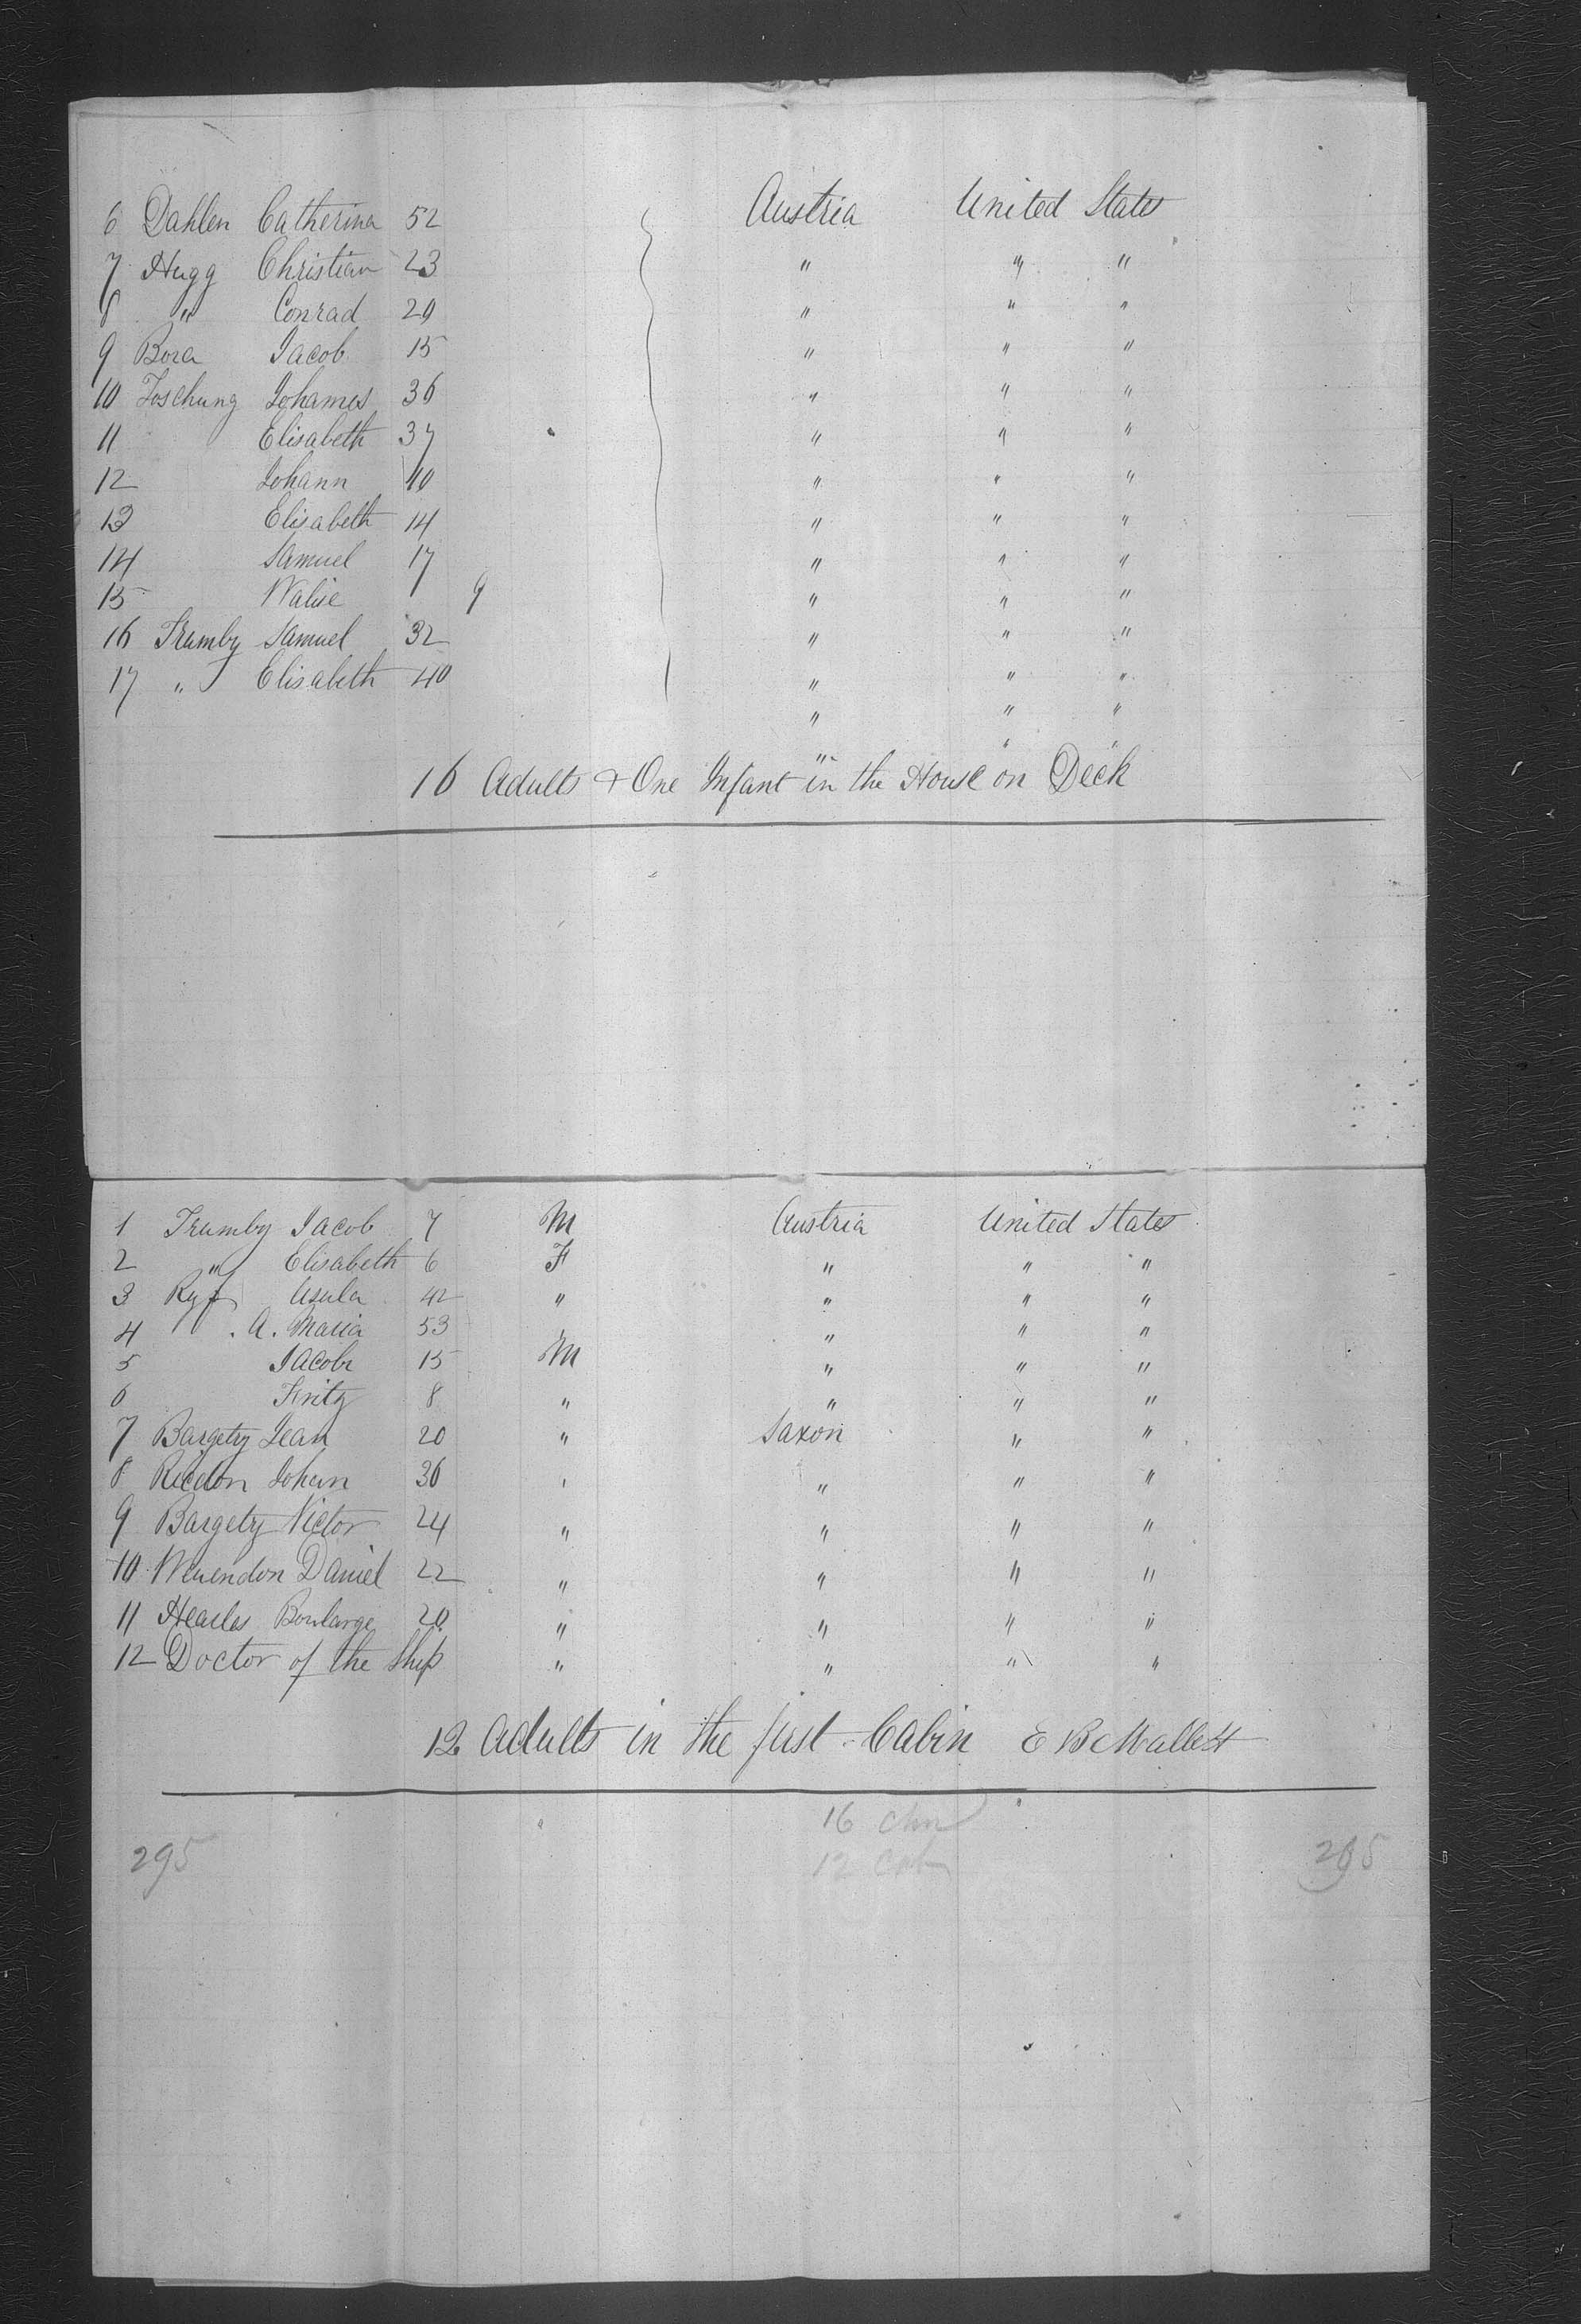 6 Dahlen Catherina 52 Austria United States
7 Hugg Christian 23 " " "
8 " Conrad 29 " " "
9 Bora Jacob 15 " " "
10 Joschung Johames 36 " " "
11 Elisabeth 37 " " "
12 Johann 10 " " "
13 Elisabeth 14 " " "
14 Samuel 17 " " "
15 Walise 9 " " "
16 Trumby Samuel 32 " " "
17 " Elisabeth 40 " " "
" " "
" " "
16 Adults & One Infant in the House on Deck
1 Trumby Jacob 7 M Austria United States
2 " Elisabeth 6 F " " "
3 Ryf Usula 42 " " " "
4 A. Maria 53 " " "
5 Jacob 15 M " " "
6 Fritz 8 " " " "
7 Bargety Jean 20 " Saxon " "
8 Riedon Johan 36 " " " "
9 Bargety Victor 24 " " " "
10 Daniel 22 " " " "
11 Heasles Bonlarge 20 " " " "
12 Doctor of the Ship " " " "
12 Adults in the first Cabin E B Mallett
16
12
295 295